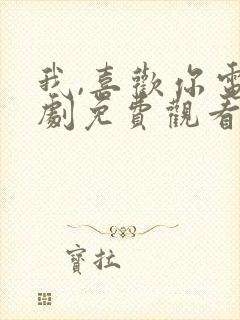 我,喜歡你電
劇免費觀看
寶拉